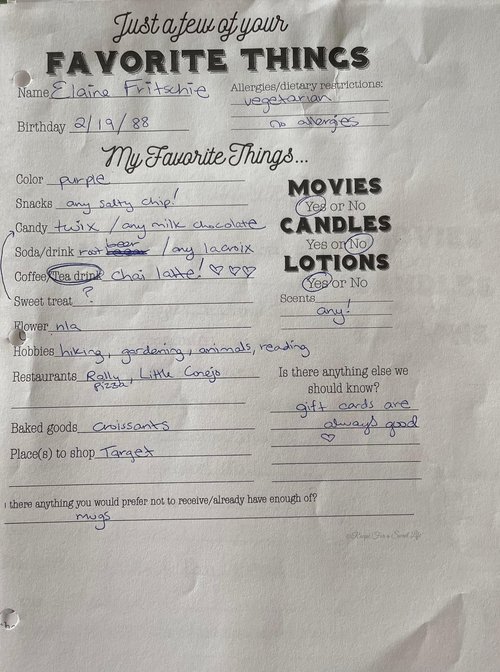 Just a few of your
FAVORITE THINGS
Name Elaine Fritschie
Allergies/dietary restrictions:
vegetarian
no allergies
Birthday 2/19/88
My Favorite Things...
Color purple
Snacks any salty chip!
Candy twix / any milk chocolate
Soda/drink root beer / any lacroix
Coffee/Tea drink chai latte! ♡♡♡
Sweet treat ?
Flower n/a
Hobbies hiking, gardening, animals, reading
Restaurants Rally Pizza, Little Conejo
Baked goods croissants
Place(s) to shop Target
MOVIES
Yes or No
CANDLES
Yes or No
LOTIONS
Yes or No
Scents
any!
Is there anything else we
should know?
gift cards are
always good
♡
there anything you would prefer not to receive/already have enough of?
mugs